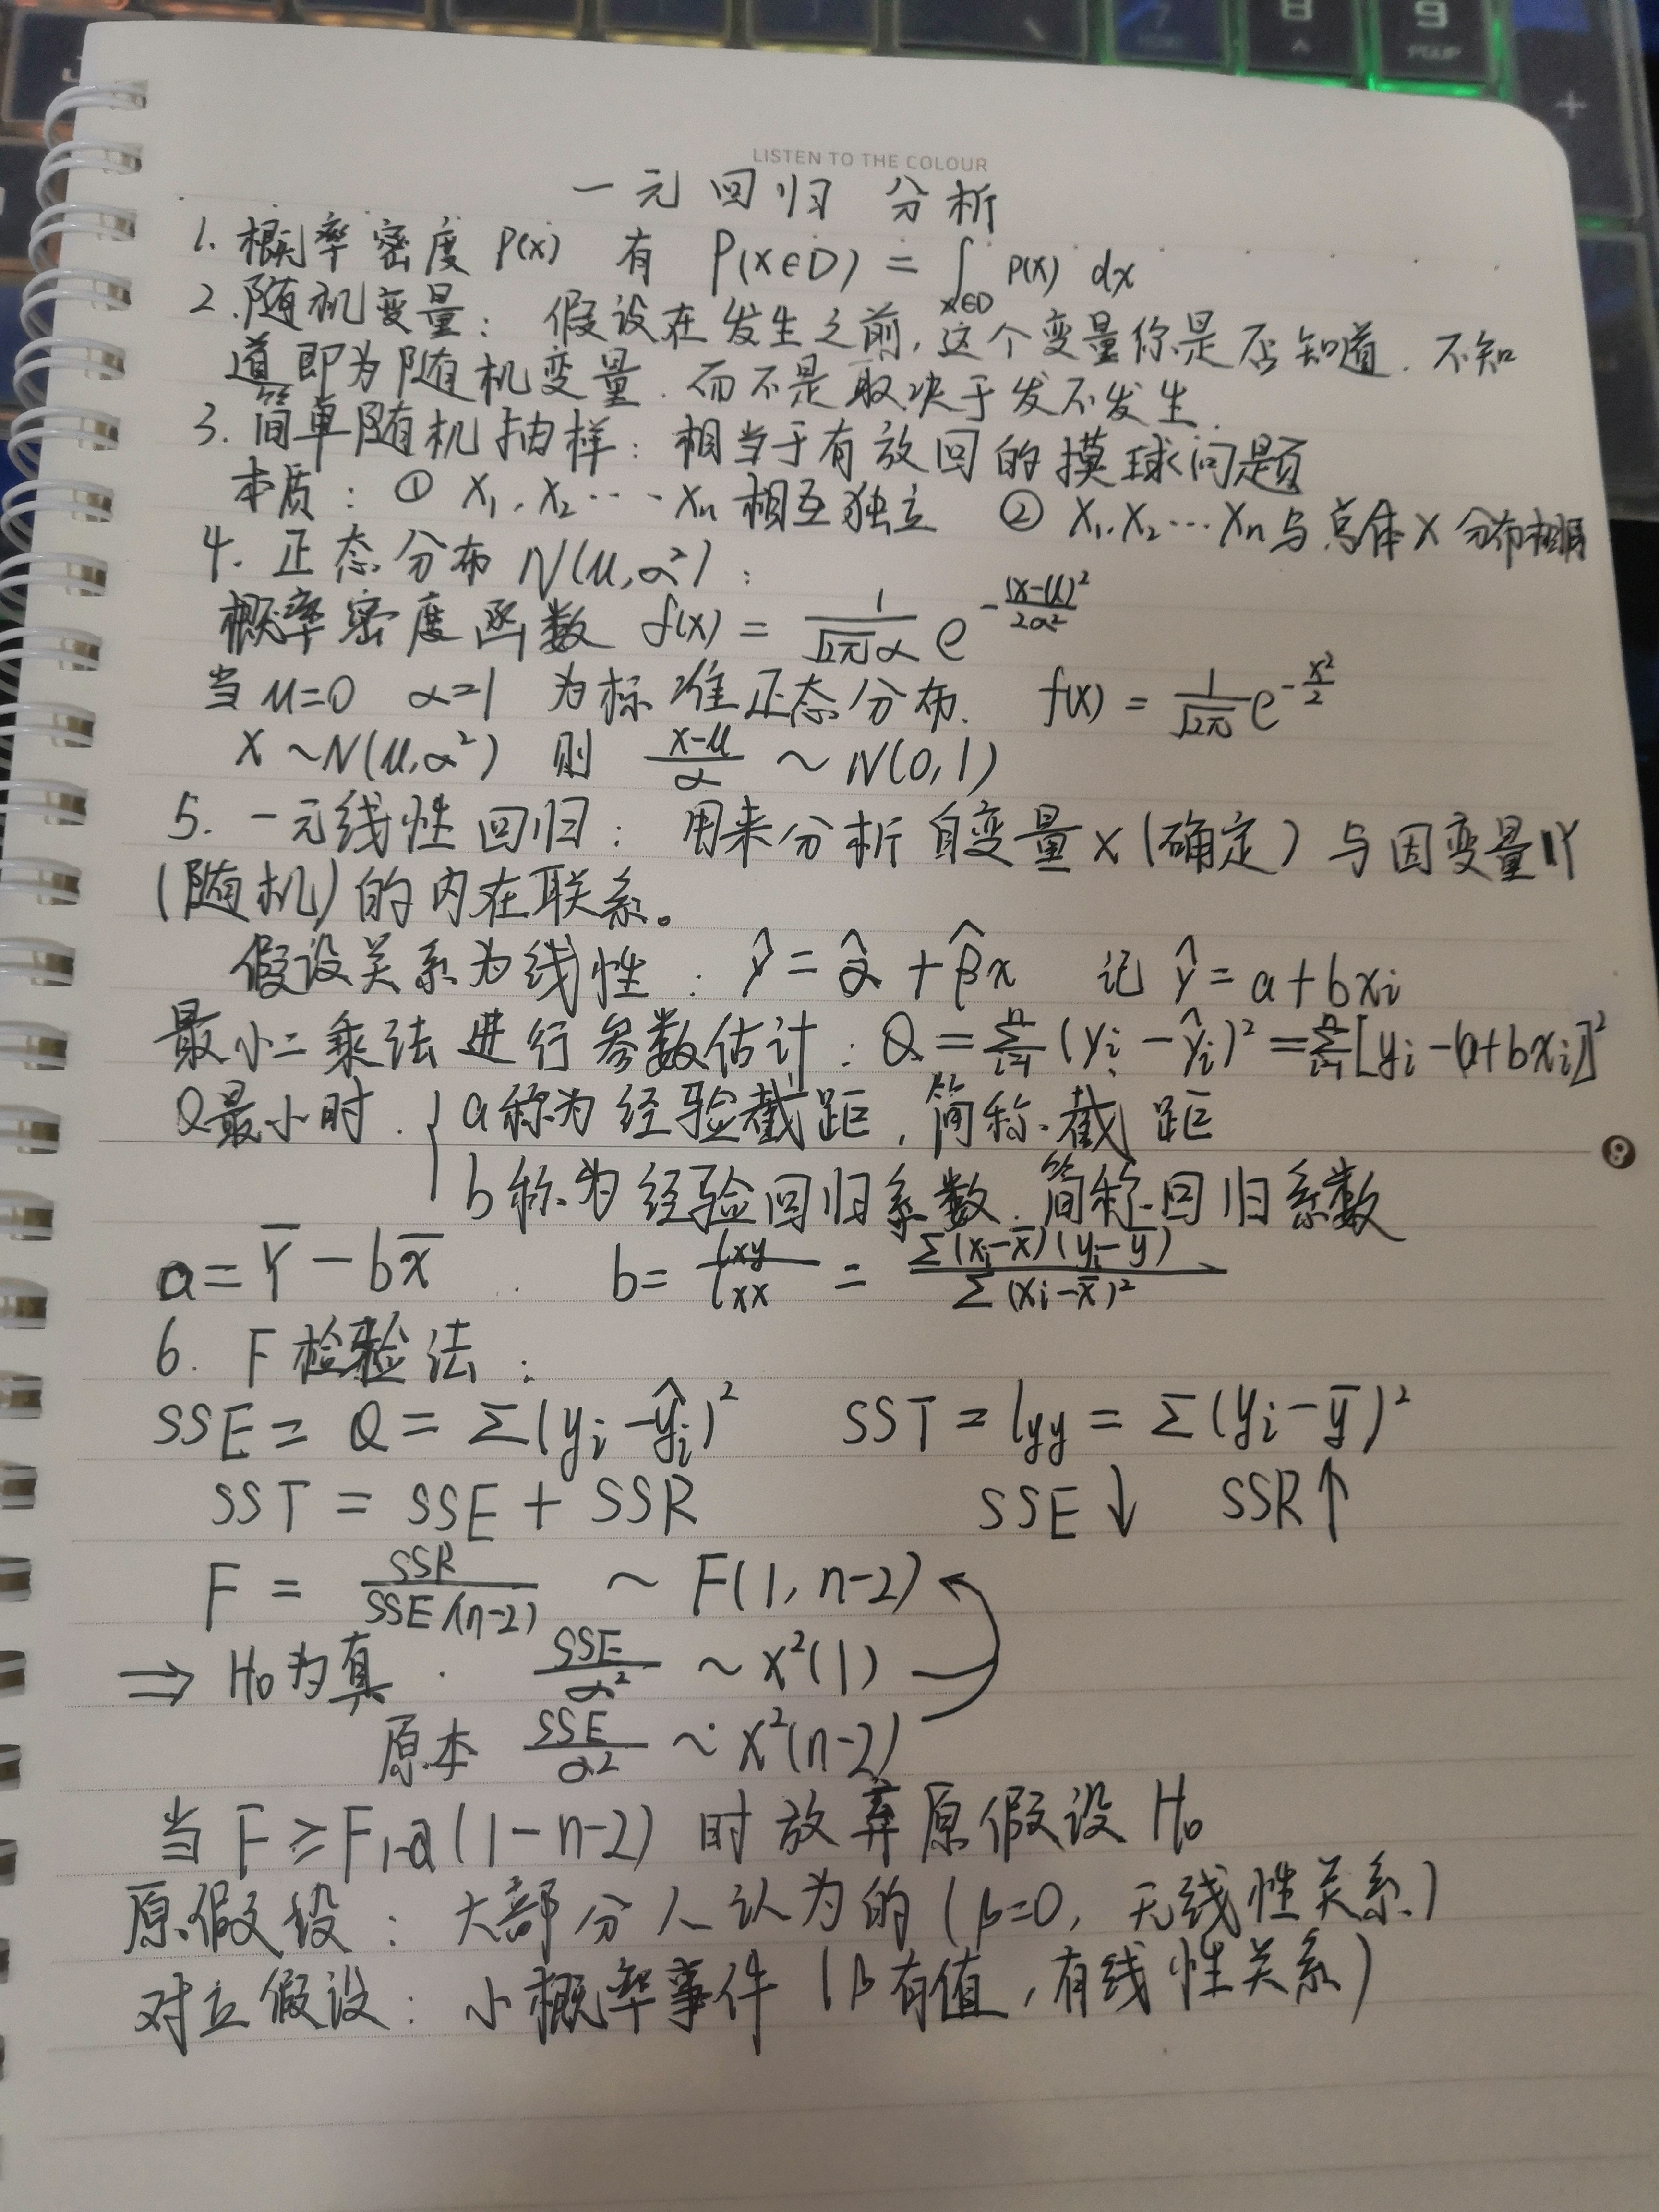 8
9
PGUP
+
LISTEN TO THE COLOUR
一元回归 分析
1. 概率密度 P(x) 有 P(x∈D) = ∫_{x∈D} P(x) dx
2. 随机变量: 假设在发生之前,这个变量你是否知道. 不知
道即为随机变量. 而不是取决于发不发生.
3. 简单随机抽样: 相当于有放回的摸球问题
本质: ① X₁, X₂ ⋯ Xn 相互独立 ② X₁, X₂ ⋯ Xn 与总体 X 分布相同
4. 正态分布 N(μ,α²):
概率密度函数 f(x) = \frac{1}{\sqrt{2π}α} e^{-\frac{(x-μ)²}{2α²}}
当 μ=0 α=1 为标准正态分布. f(x) = \frac{1}{\sqrt{2π}} e^{-\frac{x²}{2}}
X ~ N(μ,α²) 则 \frac{x-μ}{α} ~ N(0,1)
5. 一元线性回归: 用来分析自变量 x (确定) 与因变量 Y
(随机) 的内在联系。
假设关系为线性: ŷ = α̂ + β̂x 记 ŷ = a + bxi
最小二乘法进行参数估计: Q = \sum_{i=1}^{n} (yi - ŷi)² = \sum_{i=1}^{n} [yi - (a+bxi)]²
Q最小时. { a称为经验截距, 简称截距
b称为经验回归系数. 简称回归系数
a = Y̅ - bx̅ b = \frac{lxy}{lxx} = \frac{Σ(xi-x̅)(yi-y̅)}{Σ(xi-x̅)²}
6. F检验法:
SSE = Q = Σ(yi-ŷi)² SST = lyy = Σ(yi-y̅)²
SST = SSE + SSR SSE↓ SSR↑
F = \frac{SSR}{SSE/(n-2)} ~ F(1, n-2)
⇒ H₀为真. \frac{SSE}{α²} ~ X²(1)
原本 \frac{SSE}{α²} ~ X²(n-2)
当 F ≥ F1-α(1-n-2) 时放弃原假设 H₀
原假设: 大部分人认为的 (β=0, 无线性关系)
对立假设: 小概率事件 (β有值, 有线性关系)